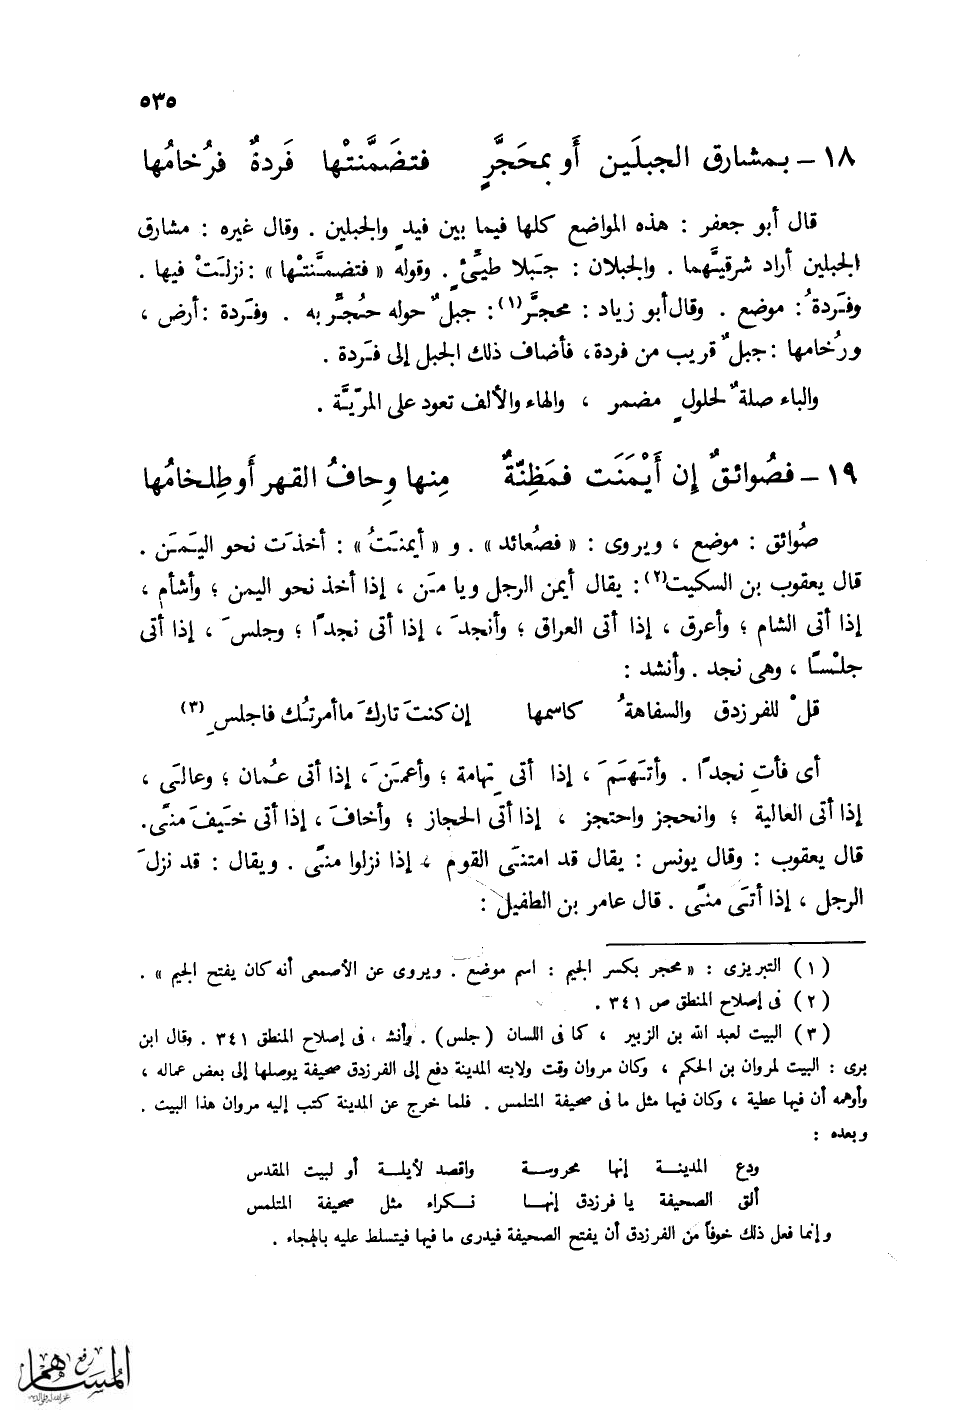 ٥٣٥
١٨ – بمشارق الجبلَين أَو بمحَجَّرٍ فتضَمَّنتْها فَردةٌ فرُخامُها
قال أبو جعفر : هذه المواضع كلها فيما بين فيدٍ والجبلين . وقال غيره : مشارق
الجبلين أراد شرقيَّهما . والجبلان : جَبلا طيِّئٍ . وقوله « فتضمَّنتْها » : نزلَتْ فيها .
وفَردةُ : موضع . وقال أبو زياد : محجَّر(١) : جبلٌ حوله حُجِّر به . وفَردة : أرض ،
ورُخامها : جبلٌ قريب من فردة ، فأضاف ذلك الجبل إلى فَردة .
والباء صلةٌ لحلولٍ مضمر ، والهاء والألف تعود على المرّيَّة .
١٩ – فصُوائقٌ إن أَيْمَنَت فمَظِنّةٌ مِنها وِحافُ القهر أَو طِلخامُها
صُوائق : موضع ، ويروى : « فصُعائد » . و « أيمنَتُ » : أخذَت نحو اليَمَن .
قال يعقوب بن السكيت(٢) : يقال أيمن الرجل ويا مَن ، إذا أخذ نحو اليمن ؛ وأشأم ،
إذا أتى الشام ؛ وأعرق ، إذا أتى العراق ؛ وأنجدَ ، إذا أتى نجداً ؛ وجلسَ ، إذا أتى
جلْساً ، وهى نجد . وأنشد :
قلْ للفرزدق والسفاهةُ كاسمها إن كنتَ تاركَ ما أمرتُك فاجلسِ (٣)
أى فأتِ نجداً . وأتهَمَ ، إذا أتى تِهامة ؛ وأعمَنَ ، إذا أتى عُمان ؛ وعالَى ،
إذا أتى العالية ؛ وانحجز واحتجز ، إذا أتى الحجاز ؛ وأخافَ ، إذا أتى خَيفَ منًى .
قال يعقوب : وقال يونس : يقال قد امتنَى القوم ، إذا نزلوا منًى . ويقال : قد نزلَ
الرجل ، إذا أتَى منًى . قال عامر بن الطفيل :
(١) التبريزى : « محجر بكسر الجيم : اسم موضع . ويروى عن الأصمعى أنه كان يفتح الجيم » .
(٢) فى إصلاح المنطق ص ٣٤١ .
(٣) البيت لعبد الله بن الزبير ، كما فى اللسان (جلس) . وأنشد فى إصلاح المنطق ٣٤١ . وقال ابن
برى : البيت لمروان بن الحكم ، وكان مروان وقت ولايته المدينة دفع إلى الفرزدق صحيفة يوصلها إلى بعض عماله ،
وأوهمه أن فيها عطية ، وكان فيها مثل ما فى صحيفة المتلمس . فلما خرج عن المدينة كتب إليه مروان هذا البيت .
وبعده :
ودع المدينة إنها محروسة واقصد لأيلة أو لبيت المقدس
ألق الصحيفة يا فرزدق إنها نكراء مثل صحيفة المتلمس
وإنما فعل ذلك خوفاً من الفرزدق أن يفتح الصحيفة فيدرى ما فيها فيتسلط عليه بالهجاء .